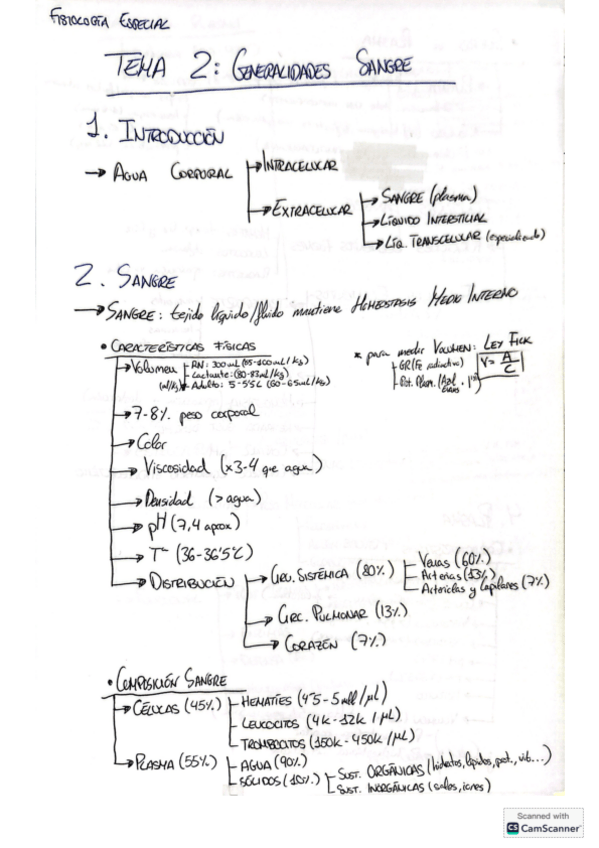 FISIOLOGÍA ESPECIAL
TEMA 2: GENERALIDADES SANGRE
1. INTRODUCCIÓN
→ AGUA CORPORAL → INTRACELULAR
→ EXTRACELULAR → SANGRE (plasma)
→ LÍQUIDO INTERSTICIAL
→ LÍQ. TRANSCELULAR (especializado)
2. SANGRE
→ SANGRE: tejido líquido/fluido mantiene HOMEOSTASIS MEDIO INTERNO
• CARACTERÍSTICAS FÍSICAS
* para medir VOLUMEN: LEY FICK
→ Volumen (ml/kg) → RN: 300ml (85-100ml/kg)
→ Lactante: (80-83ml/kg)
→ Adulto: 5-5'5L (60-65ml/kg)
GR (Fe radiactivo)
Prot. Plasm. (Azul Evans, I¹³¹)
V = A/C
→ 7-8% peso corporal
→ Color
→ Viscosidad (x3-4 que agua)
→ Densidad (> agua)
→ pH (7,4 aprox)
→ Tª (36-36'5ºC)
→ DISTRIBUCIÓN → CIRC. SISTÉMICA (80%) Venas (60%)
Arterias (13%)
Arteriolas y Capilares (7%)
→ CIRC. PULMONAR (13%)
→ CORAZÓN (7%)
• COMPOSICIÓN SANGRE
→ CÉLULAS (45%) HEMATÍES (4'5-5 mill/µL)
LEUCOCITOS (4K-12K/µL)
TROMBOCITOS (150K-450K/µL)
→ PLASMA (55%) AGUA (90%)
SÓLIDOS (10%) SUST. ORGÁNICAS (hidratos, lípidos, prot., vit...)
SUST. INORGÁNICAS (sales, iones)
Scanned with
CS CamScanner